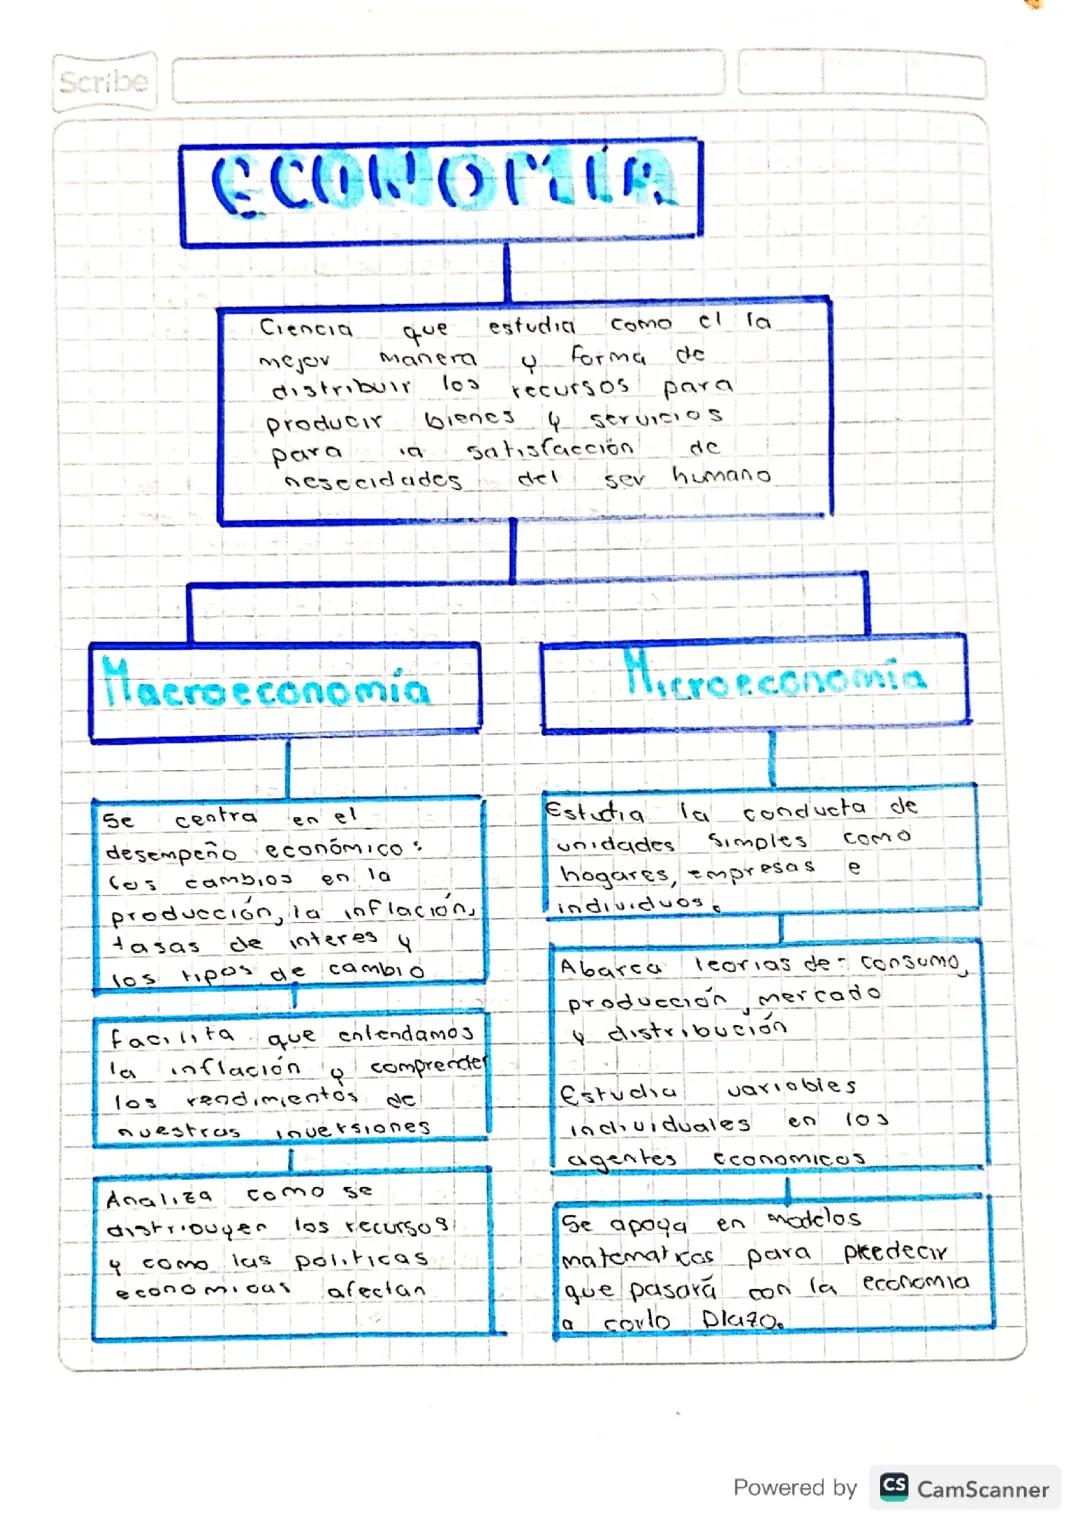 Scribe
ECONOMÍA
Ciencia que estudia como el la
mejor manera y forma de
distribuir los recursos para
producir bienes y servicios
para la satisfacción de
nesecidades del ser humano
Macroeconomía
Microeconomía
Se centra en el
desempeño económico:
los cambios en la
producción, la inflación,
tasas de interes y
los tipos de cambio
Facilita que entendamos
la inflación y comprender
los rendimientos de
nuestras inversiones
Analiza como se
distribuyen los recursos
y como las politicas
economicas afectan
Estudia la conducta de
unidades simples como
hogares, empresas e
individuos.
Abarca teorias de: consumo,
producción, mercado
y distribución
Estudia variables
individuales en los
agentes economicos
Se apoya en modelos
matematicos para predecir
que pasará con la economia
a corto plazo.
Powered by CS CamScanner